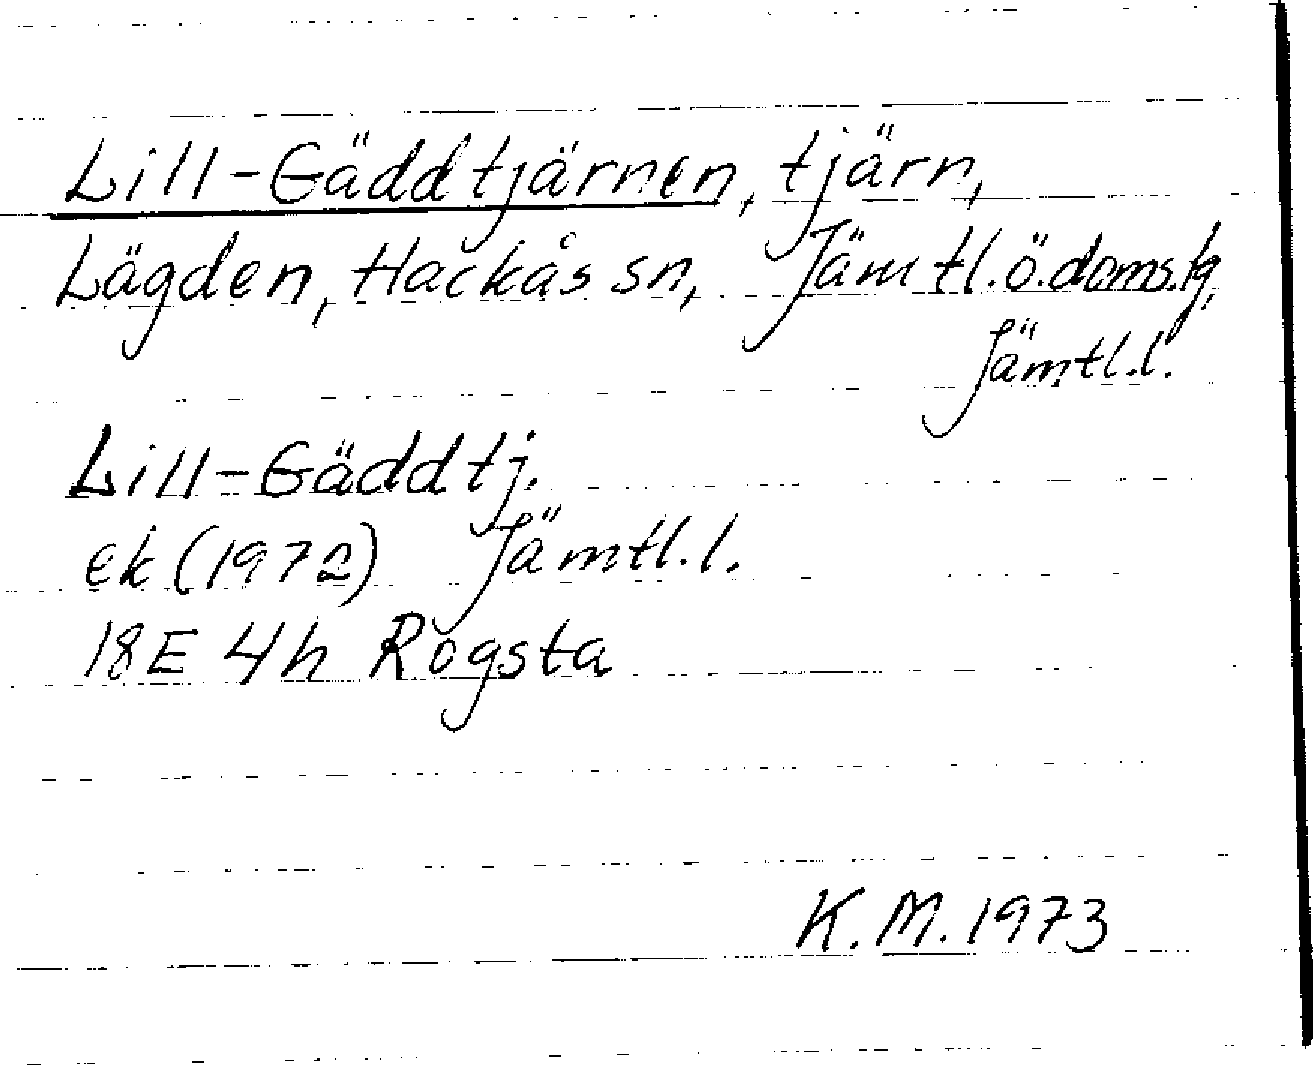 Lill-Gäddtjärnen, tjärn,
Lägden, Hackås sn, Jämtl.ö.doms.g,
Jämtl.l.
Lill-Gäddtj.
ek (1972) Jämtl.l.
18E 4h Rogsta
K.M. 1973